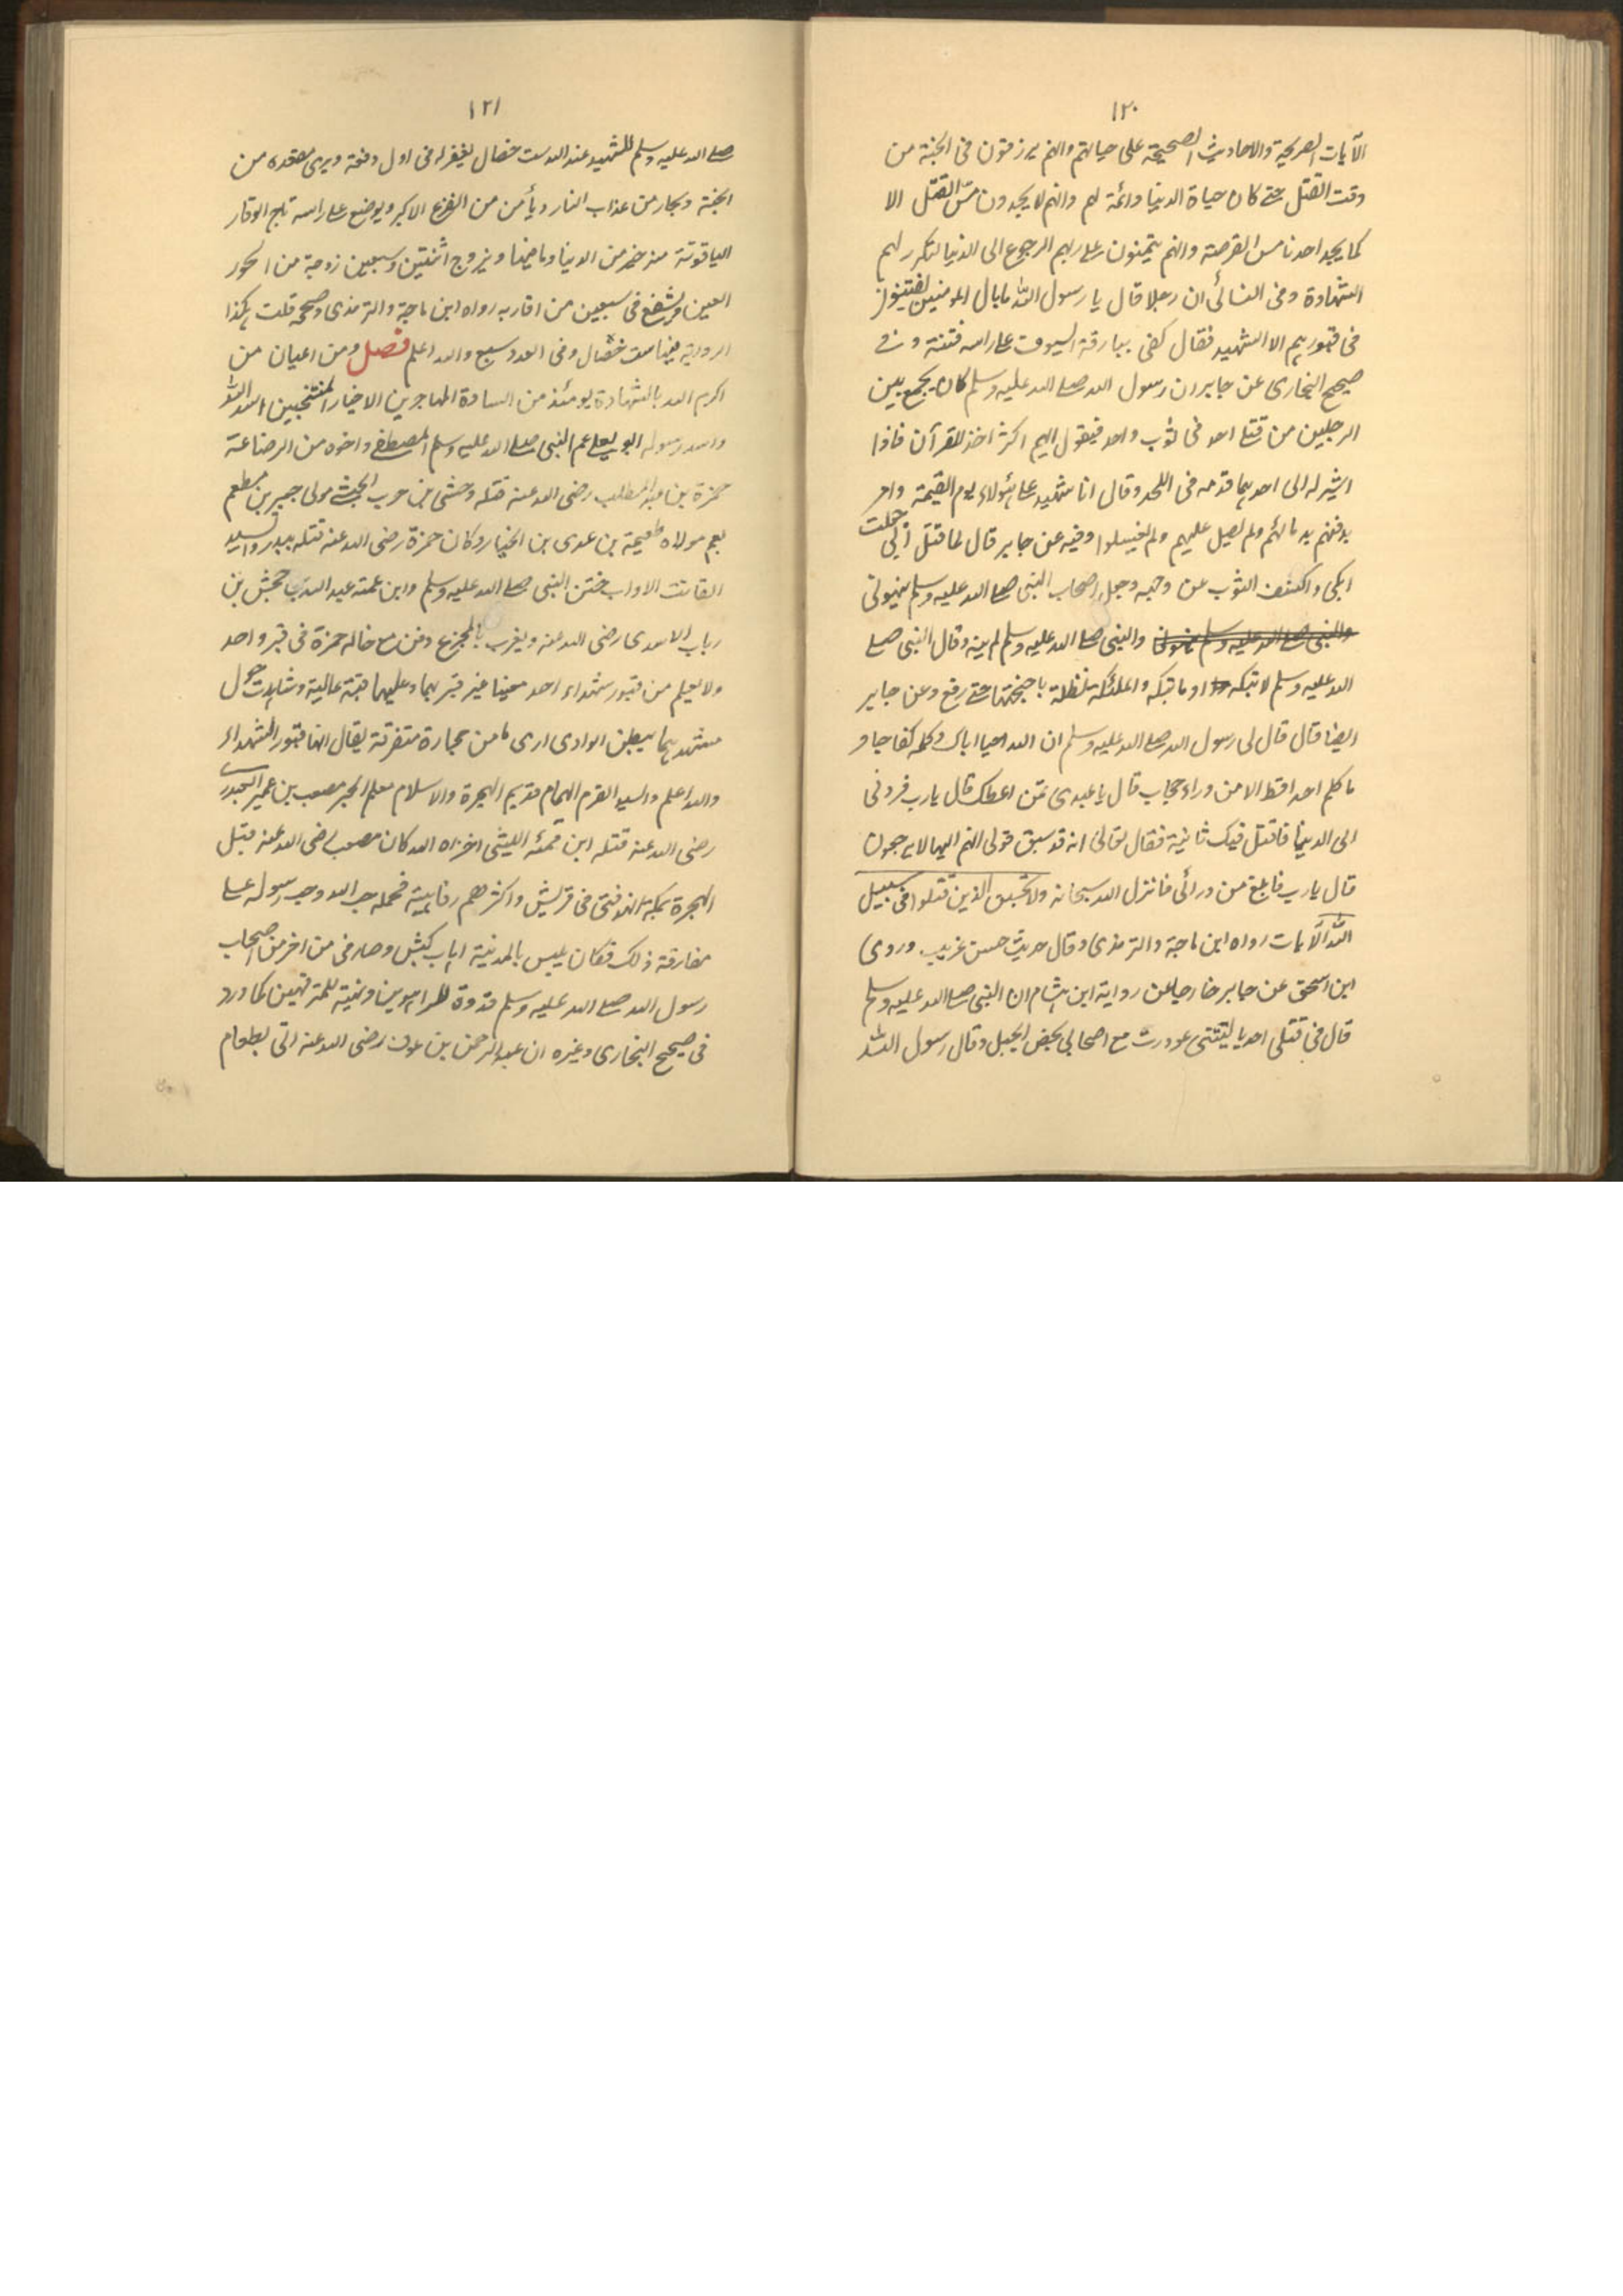 ١٢٠
الآيات الصريحة والاحاديث الصحيحة على حياتهم وانهم يرزقون في الجنة من
وقت القتل حتى كان حياة الدنيا دائمة لهم وانهم لا يجدون مسّ القتل الا
كما يجد احدنا مس القرصة وانهم يتمنون على ربهم الرجوع الى الدنيا لتكرر لهم
الشهادة وفي النسائى ان رجلا قال يا رسول الله ما بال المومنين يفتنون
في قبورهم الا الشهيد فقال كفى ببارقة السيوف على راسه فتنة وفي
صحيح البخارى عن جابر ان رسول الله صلى الله عليه وسلم كان يجمع بين
الرجلين من قتلى احد في ثوب واحد فيقول ايهم اكثر اخذ للقرآن فاذا
اشير له الى احدهما قدمه في اللحد وقال انا شهيد على هؤلاء يوم القيمة وامر
بدفنهم بدمائهم ولم يصل عليهم ولم يغسلوا وفيه عن جابر قال لما قتل أبى جعلت
ابكى واكشف الثوب عن وجهه وجعل اصحاب النبى صلى الله عليه وسلم ينهونى
والنبى صلى الله عليه وسلم ينهونى والنبى صلى الله عليه وسلم لم ينه وقال النبى صلى
الله عليه وسلم لا تبكه او ما تبكه والملئكة تظله باجنحتها حتى رفع وعن جابر
ايضا قال قال لى رسول الله صلى الله عليه وسلم ان الله احيا اباك وكلمه كفاحا و
ما كلم احدا قط الا من وراء حجاب قال يا عبدى تمن اعطك قال يا رب فردنى
الى الدنيا فاقتل فيك ثانية فقال تعالى انه قد سبق قولى انهم اليها لا يرجعون
قال يا رب فابلغ من ورائى فانزل الله سبحانه ولا تحسبن الذين قتلوا في سبيل
الله الآيات رواه ابن ماجة والترمذى وقال حديث حسن غريب وروى
ابن اسحق عن جابر خارجا عن رواية ابن هشام ان النبى صلى الله عليه وسلم
قال في قتلى احد يا ليتنى غودرت مع اصحابى بحضن الجبل وقال رسول الله
١٢١
صلى الله عليه وسلم للشهيد عند الله ست خصال يغفر له في اول دفعة ويرى مقعده من
الجنة ويجار من عذاب النار ويأمن من الفزع الاكبر ويوضع على راسه تاج الوقار
الياقوتة منه خير من الدنيا وما فيها ويزوج اثنتين وسبعين زوجة من الحور
العين ويشفع في سبعين من اقاربه رواه ابن ماجة والترمذى وصححه قلت هكذا
الرواية فيها ست خصال وفي العدد سبع والله اعلم فصل ومن اعيان من
اكرم الله بالشهادة يومئذ من السادة المهاجرين الاخيار المنتخبين اسد الله
واسد رسوله ابو يعلى عم النبى صلى الله عليه وسلم المصطفى واخوه من الرضاعة
حمزة بن عبد المطلب رضى الله عنه قتله وحشى بن حرب الحبشى مولى جبير بن مطعم
بعم مولاه طعيمة بن عدى بن الخيار وكان حمزة رضى الله عنه قتله ببدر والسيد
القانت الاواب ختن النبى صلى الله عليه وسلم وابن عمته عبد الله بن جحش بن
رباب الاسدى رضى الله عنه ويعرف بالمجدع دفن مع خاله حمزة في قبر واحد
ولا يعلم من قبور شهداء احد معينا غير قبريهما وعليهما قبة عالية وشاهدت حول
مشهدهما ببطن الوادى ارى ما من حجارة متفرقة يقال انها قبور الشهداء
والله اعلم والسيد القرم الهمام قديم الهجرة والاسلام معلم الخير مصعب بن عمير العبدرى
رضى الله عنه قتله ابن قمئه الليثى اخزاه الله كان مصعب رضى الله عنه قبل
الهجرة بمكة انعم فتى في قريش واكثرهم رفاهية فحمله حب الله وحب رسوله على
مفارقة ذلك فكان يلبس بالمدينة اهاب كبش وصار في من اخر من اصحاب
رسول الله صلى الله عليه وسلم قدوة للراهبين وتنبيه للمترفهين كما ورد
في صحيح البخارى وغيره ان عبد الرحمن بن عوف رضى الله عنه اتى بطعام